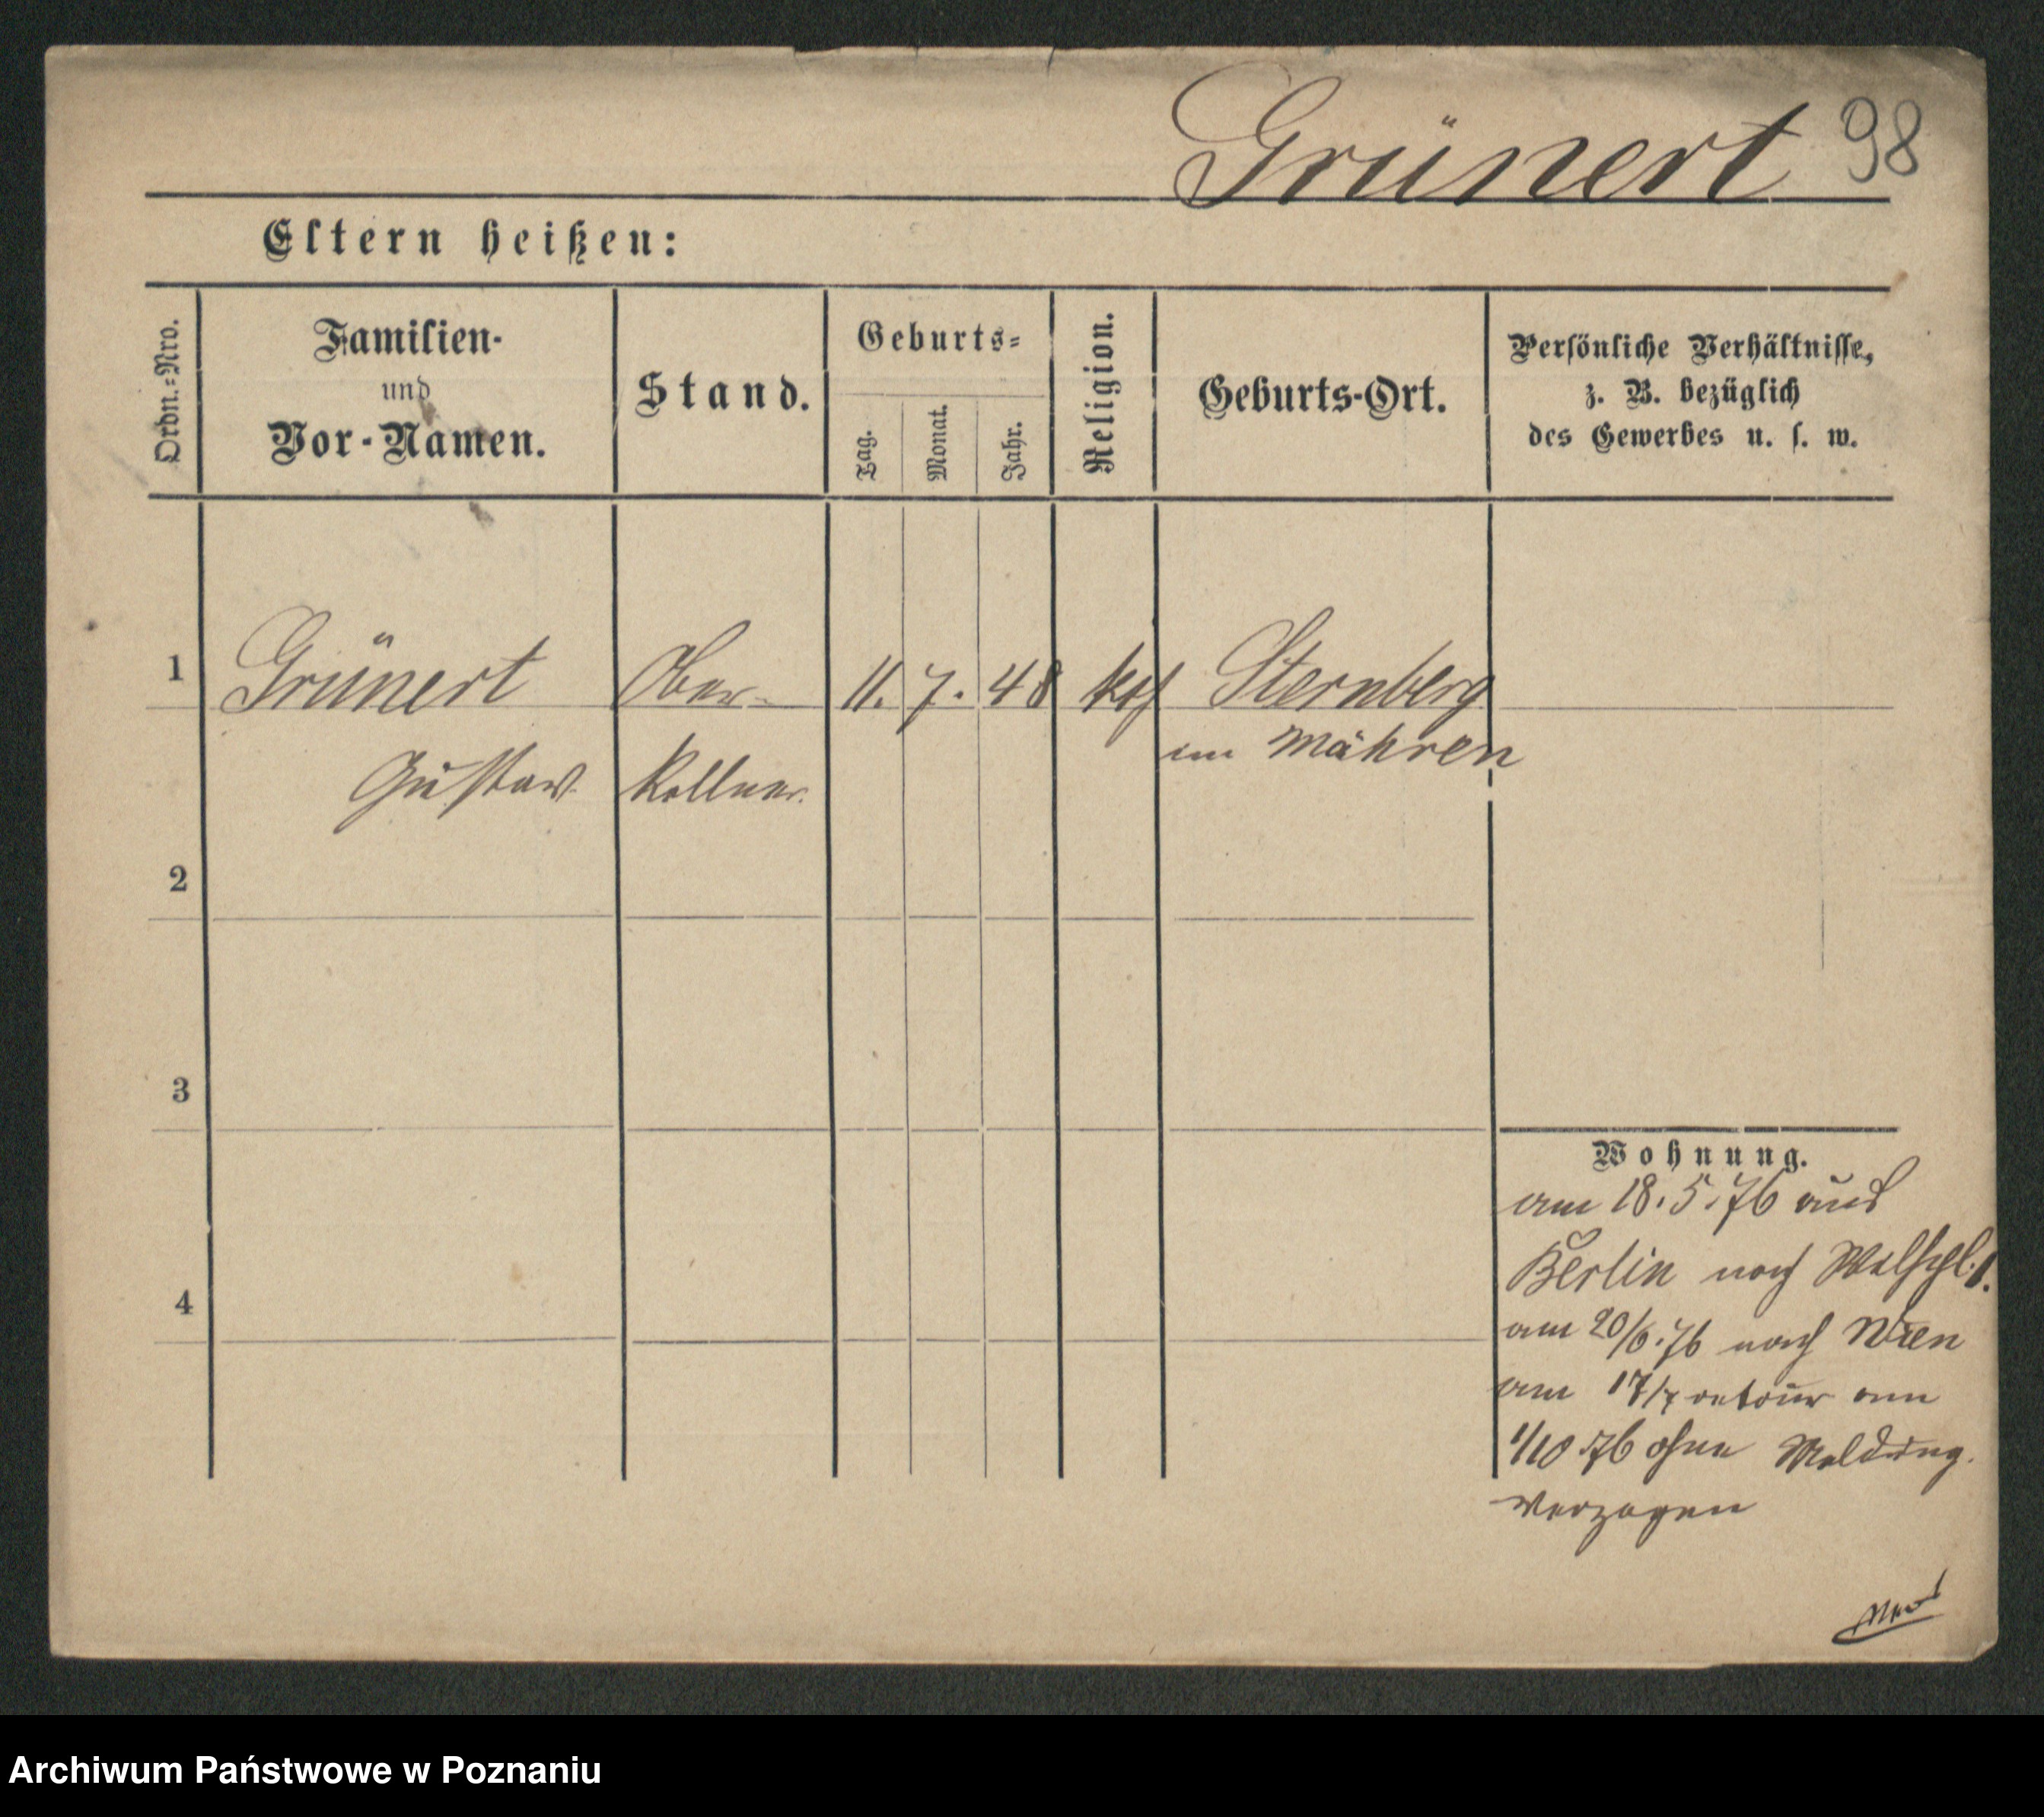 Grünert 98
Eltern heißen:
Ordn.-Nro.
Familien-
und
Vor-Namen.
Stand.
Geburts-
Tag.
Monat.
Jahr.
Religion.
Geburts-Ort.
Persönliche Verhältnisse,
z. B. bezüglich
des Gewerbes u. s. w.
1 Grünert Ober- 11. 7. 48 kth Sternberg
in Mähren
Gustav Kellner.
2
3
4
Wohnung.
am 18.5.76 aus
Berlin nach
am 20/6.76 nach Wien
am 17/7 retour am
1/10 76 ohne Meldung.
verzogen
Archiwum Państwowe w Poznaniu